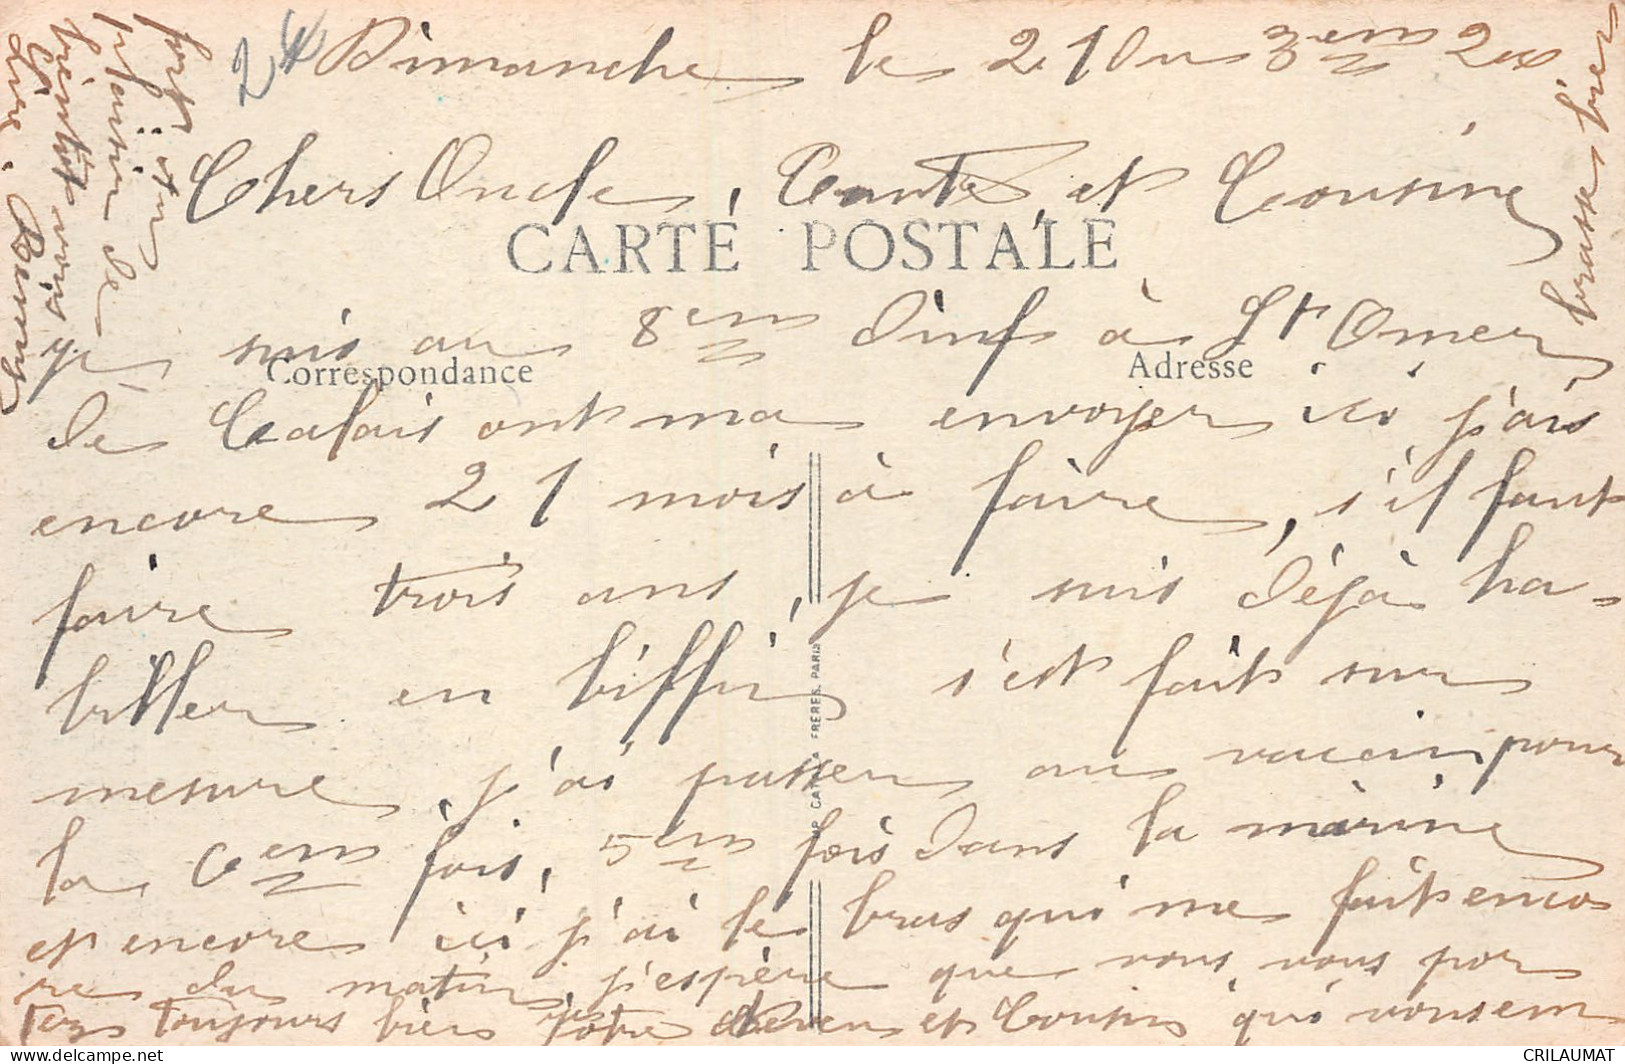 24 Dimanche le 21 Du 3em 24
Chers Oncle, Tante, et Cousine
CARTE POSTALE
je suis au 8em d'inf à St Omer
Correspondance
Adresse
de Calais ont ma envoyer ici j'ais
encore 21 mois à faire, s'il faut
faire trois ans, je suis déjà ha-
biller en biffin s'est fait sur
mesure, j'ai passer au vaccin pour
la 6em fois, 5em fois dans la marine
et encore ici j'ai le bras qui me fait enco
re du matin, j'espère que vous vous por
tez toujours bien Votre neveu et Cousin qui vous em
brasse bien
fort et au
plaisir de
bientôt vous
lire. Remy
IMP. CATALA FRERES, PARIS
CRILAUMAT